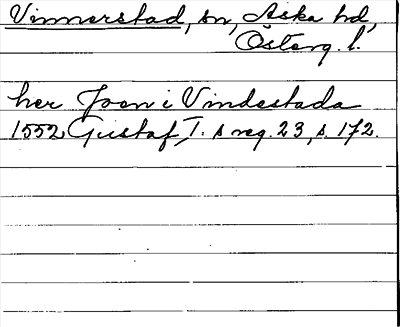 Vinnerstad, sn, Aska hd,
Österg. l.
her Joen i Vindestada
1552 Gustaf I. s reg. 23, s. 172.